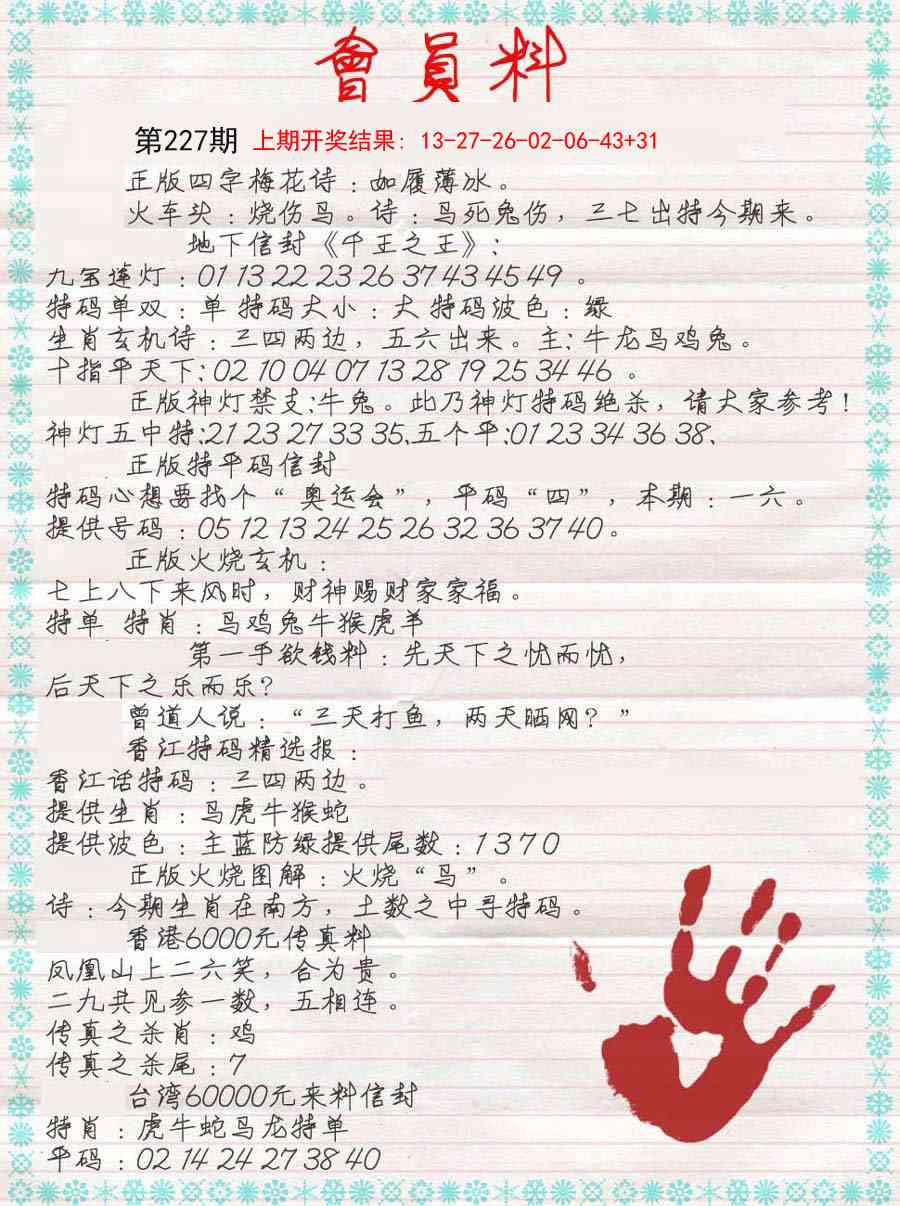 會員料
第227期 上期开奖结果: 13-27-26-02-06-43+31
正版四字梅花诗:如履薄冰。
火车头:烧伤鸟。诗:鸟死兔伤,三七出特今期来。
地下信封《千王之王》:
九宝莲灯:01 13 22 23 26 37 43 45 49 。
特码单双:单 特码大小:大 特码波色:绿
生肖玄机诗:三四两边,五六出来。主:牛龙鸟鸡兔。
十指平天下:02 10 04 07 13 28 19 25 34 46 。
正版神灯禁支:牛兔。此乃神灯特码绝杀,请大家参考!
神灯五中特:21 23 27 33 35、五个平:01 23 34 36 38、
正版特平码信封
特码心想要找个“奥运会”,平码“四”,本期:一六。
提供号码:05 12 13 24 25 26 32 36 37 40。
正版火烧玄机:
七上八下来风时,财神赐财家家福。
特单 特肖:鸟鸡兔牛猴虎羊
第一手欲钱料:先天下之忧而忧,
后天下之乐而乐?
曾道人说:“三天打鱼,两天晒网?”
香江特码精选报:
香江话特码:三四两边。
提供生肖:鸟虎牛猴蛇
提供波色:主蓝防绿提供尾数:1 3 7 0
正版火烧图解:火烧“鸟”。
诗:今期生肖在南方,土数之中寻特码。
香港6000元传真料
凤凰山上二六笑,合为贵。
二九共见参一数,五相连。
传真之杀肖:鸡
传真之杀尾:7
台湾60000元来料信封
特肖:虎牛蛇鸟龙特单
平码:02 14 24 27 38 40